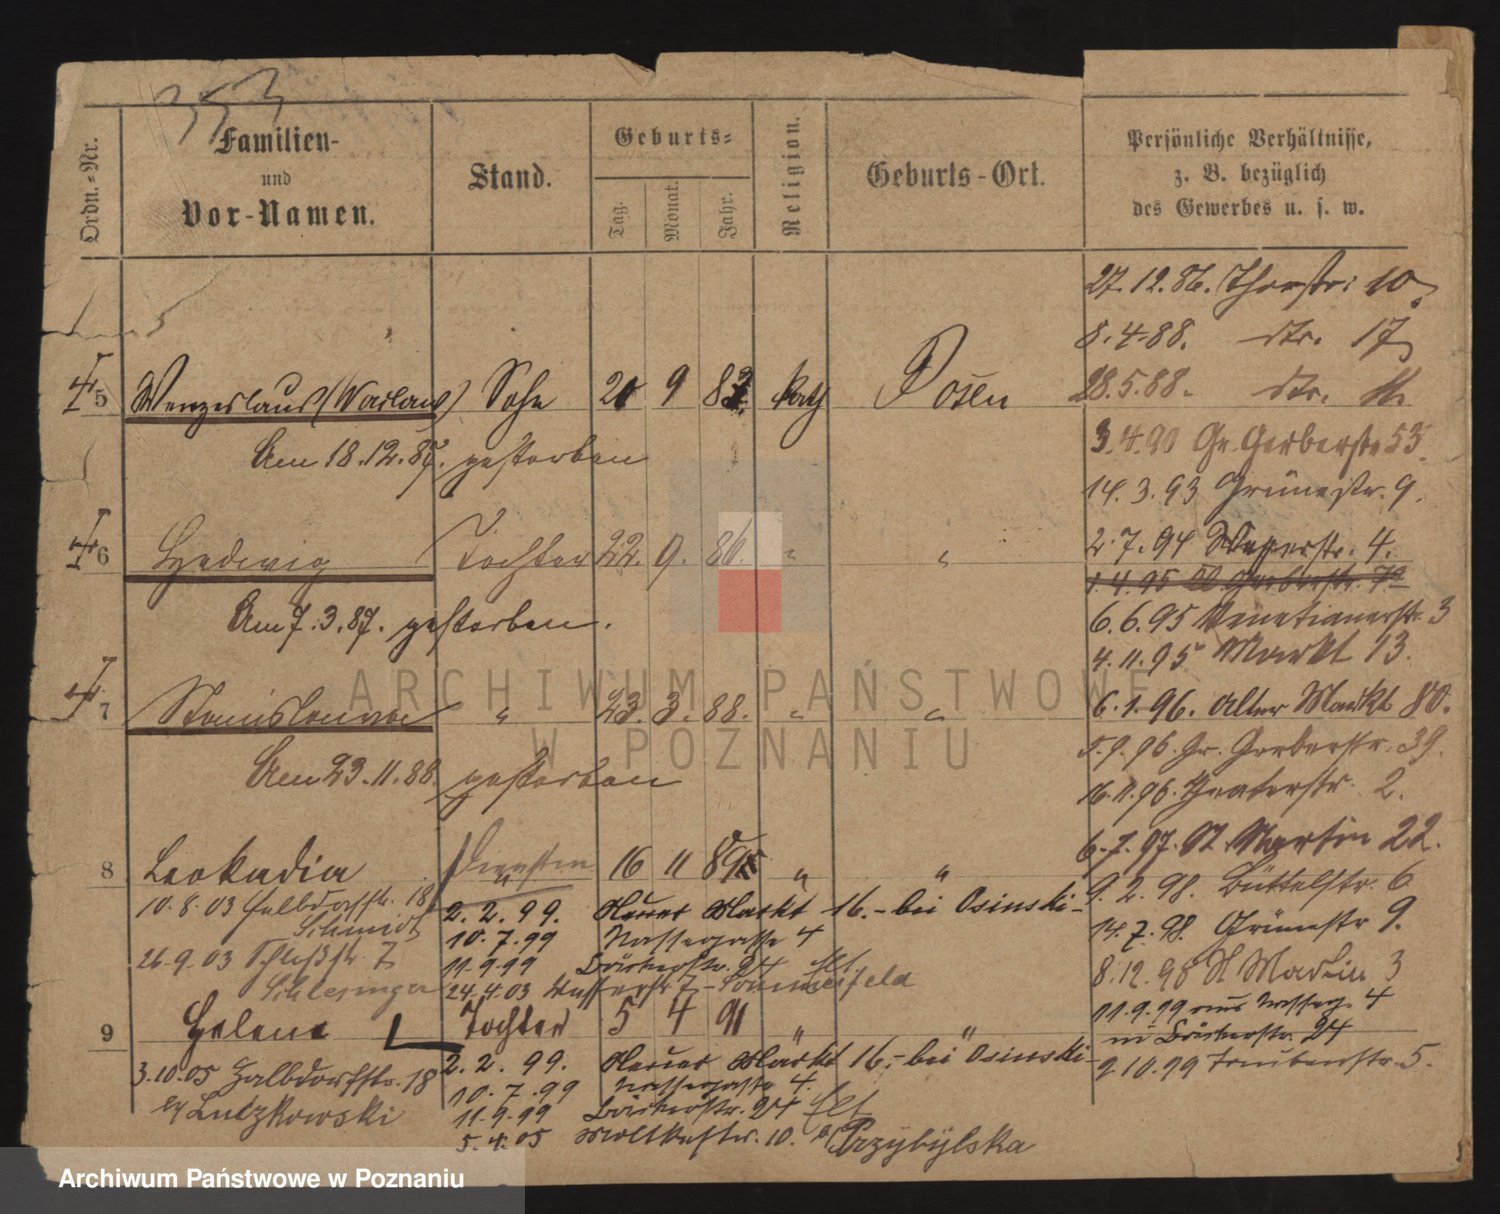 353
Ordn.-Nr.
Familien-
und
Vor-Namen.
Stand.
Geburts-
Tag.
Monat.
Jahr.
Religion.
Geburts-Ort.
Persönliche Verhältnisse,
z. B. bezüglich
des Gewerbes u. s. w.
27.12.86. Thorstr. 10
8.4.88. dto. 17
5 Wenzeslaus (Waclaw) Sohn 9 Kath Posen
28.5.88. dto.
Am 18.12.87. gestorben
3.4.90 Gr. Gerberstr 53
14.3.93 Grünestr. 9.
6 Hedwig Tochter 22. 9. 86. " "
2.7.94 Wasserstr. 4.
1.4.95 Gerberstr.
Am 7.3.87. gestorben.
6.6.95 Venetianerstr. 3
4.11.95 Markt 13.
7 Stanislawa " 23. 3. 88. " "
6.1.96. Alter Markt 80.
5.9.96. Gr. Gerberstr. 39.
Am 23.11.88. gestorben
16.11.96. Theaterstr. 2.
6.7.97. St Martin 22.
8 Leokadia " 16 11 " "
9.2.98. Büttelstr. 6
10.8.03 Halbdorfstr. 18
Schmidt
2.2.99. Neuer Markt 16.- bei Osinski-
14.7.98. Grünestr 9.
10.7.99 Nassegasse 4
26.9.03 Schloßstr. 7
Schlesinger
11.9.99 Bäckerstr. 24 Elt
8.12.98 St Martin 3
24.4.03 Wasserstr 7 - Sommerfeld
11.9.99 aus Nasseg. 4
in Bäckerstr. 24
9 Helene Tochter 5 4 91 " "
2.2.99. Neuer Markt 16.- bei Osinski
2.10.99 Taubenstr. 5.
3.10.05 Halbdorfstr. 18
b/ Lutzkowski
10.7.99 Nassegasse 4.
11.9.99 Bäckerstr. 24 Elt
5.4.05 Moltkestr. 10. b/ Przybylska
ARCHIWUM PAŃSTWOWE
W POZNANIU
Archiwum Państwowe w Poznaniu